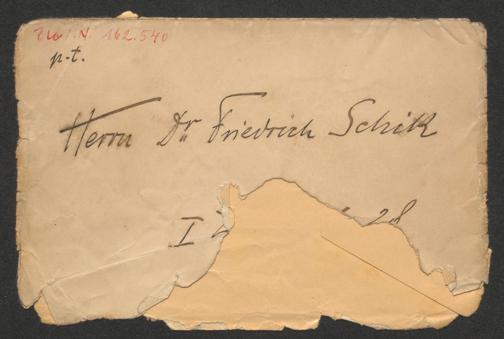 162.540
p.t.
Herrn Dr. Friedrich Schik
I 28